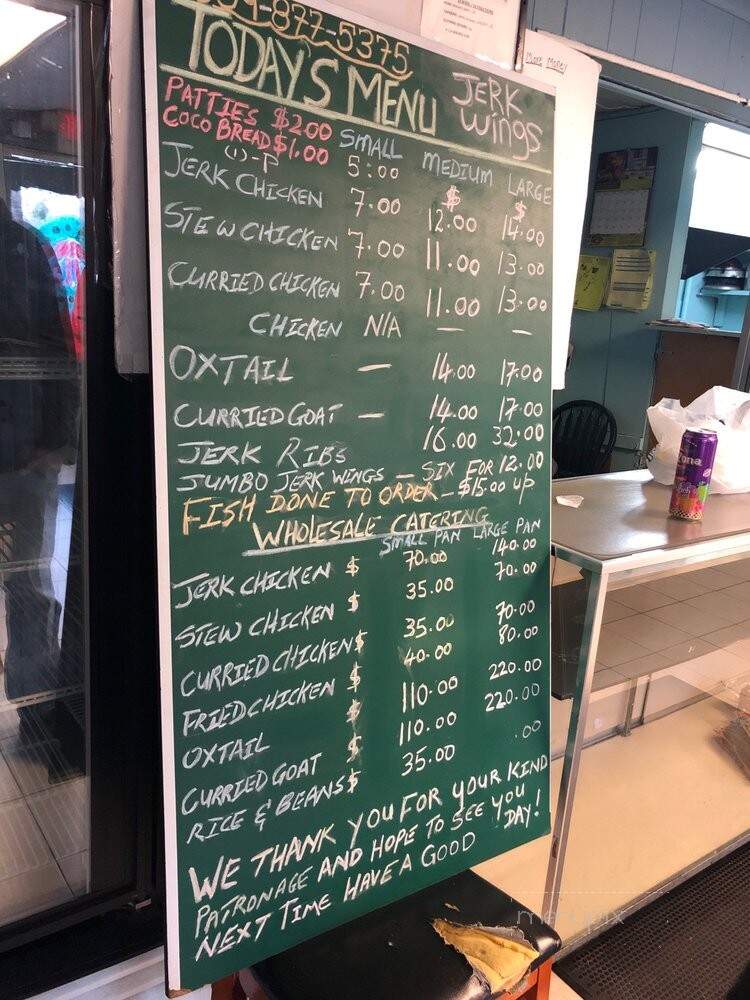 877-5375
TODAY'S MENU
JERK
WINGS
PATTIES $2.00
COCO BREAD $1.00
SMALL MEDIUM LARGE
5:00 $ $
JERK CHICKEN 7.00 12.00 14.00
STEW CHICKEN 7.00 11.00 13.00
CURRIED CHICKEN 7.00 11.00 13.00
CHICKEN N/A — —
OXTAIL — 14.00 17.00
CURRIED GOAT — 14.00 17.00
JERK RIBS 16.00 32.00
JUMBO JERK WINGS — SIX FOR 12.00
FISH DONE TO ORDER — $15.00 UP
WHOLESALE CATERING
SMALL PAN LARGE PAN
JERK CHICKEN $ 70.00 140.00
STEW CHICKEN $ 35.00 70.00
CURRIED CHICKEN $ 35.00 70.00
FRIED CHICKEN $ 40.00 80.00
OXTAIL $ 110.00 220.00
CURRIED GOAT $ 110.00 220.00
RICE & BEANS $ 35.00 .00
WE THANK YOU FOR YOUR KIND
PATRONAGE AND HOPE TO SEE YOU
NEXT TIME HAVE A GOOD DAY!
More Money